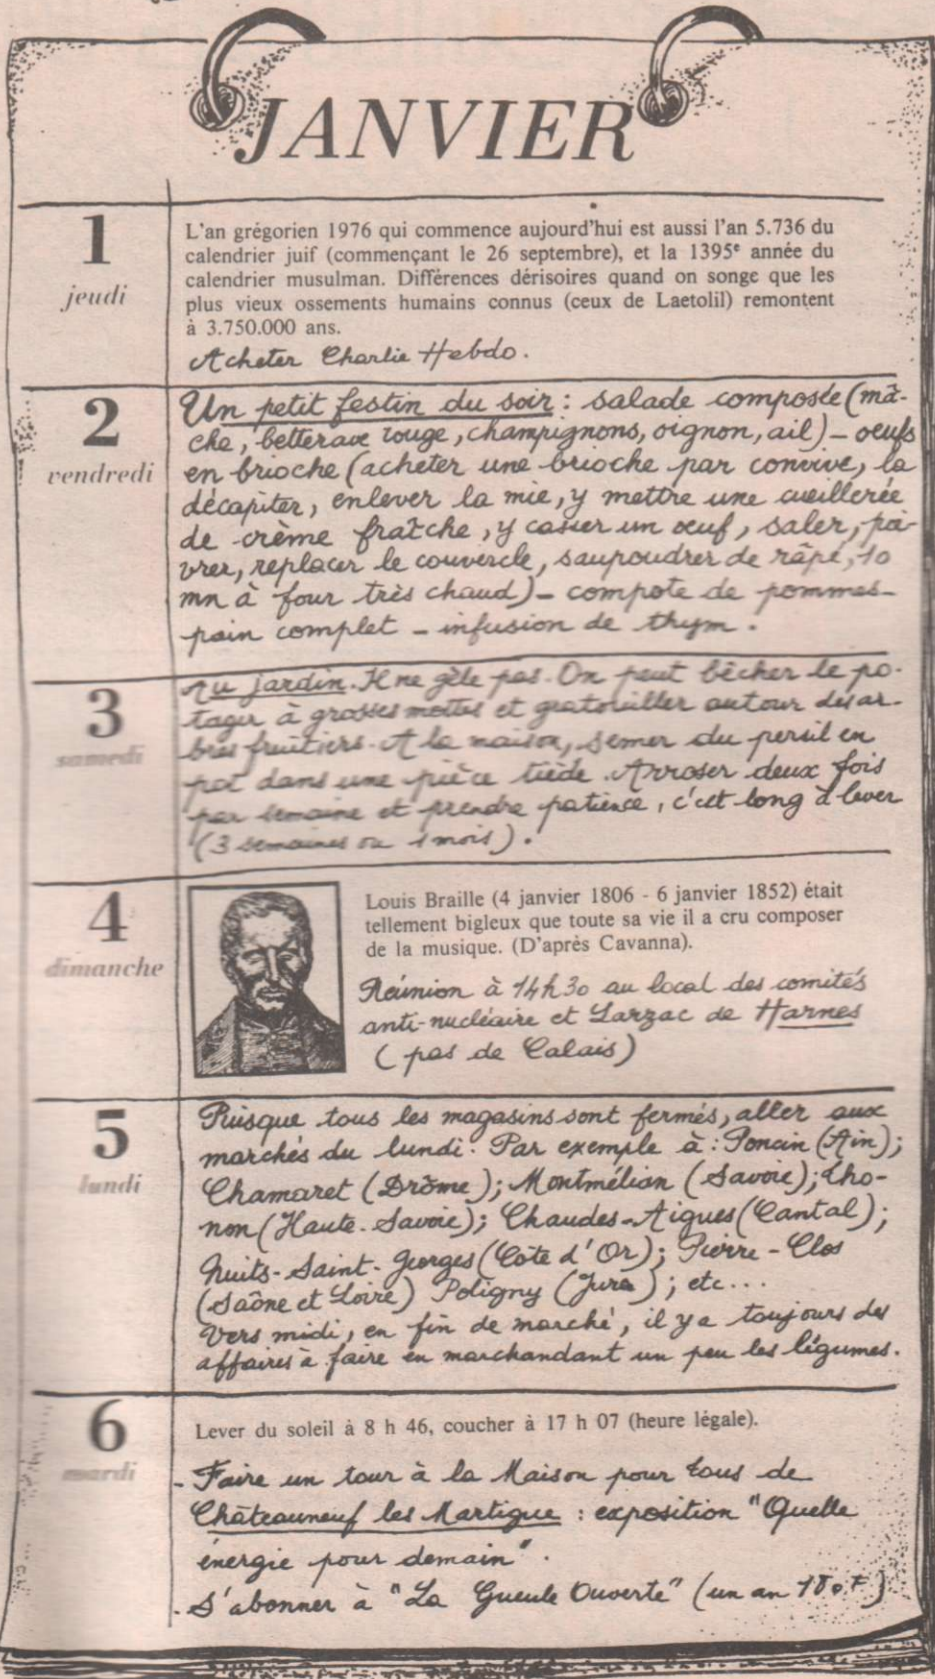 JANVIER
1
jeudi
L'an grégorien 1976 qui commence aujourd'hui est aussi l'an 5.736 du
calendrier juif (commençant le 26 septembre), et la 1395e année du
calendrier musulman. Différences dérisoires quand on songe que les
plus vieux ossements humains connus (ceux de Laetolil) remontent
à 3.750.000 ans.
Acheter Charlie Hebdo.
2
vendredi
Un petit festin du soir : salade composée (mâ-
che, betterave rouge, champignons, oignon, ail) _ oeufs
en brioche (acheter une brioche par convive, la
décapiter, enlever la mie, y mettre une cueillerée
de crème fraîche, y casser un œuf, saler, poi-
vrer, replacer le couvercle, saupoudrer de râpé, 10
mn à four très chaud) _ compote de pommes _
pain complet _ infusion de thym.
3
samedi
Au jardin. Il ne gèle pas. On peut bêcher le po-
tager à grosses mottes et gratouiller autour des ar-
bres fruitiers. A la maison, semer du persil en
pot dans une pièce tiède. Arroser deux fois
par semaine et prendre patience, c'est long à lever
(3 semaines ou 1 mois).
4
dimanche
Louis Braille (4 janvier 1806 - 6 janvier 1852) était
tellement bigleux que toute sa vie il a cru composer
de la musique. (D'après Cavanna).
Réunion à 14h30 au local des comités
anti-nucléaire et Larzac de Harnes
(pas de Calais)
5
lundi
Puisque tous les magasins sont fermés, aller aux
marchés du lundi. Par exemple à : Poncin (Ain);
Chamaret (Drôme); Montmélian (Savoie); Tho-
non (Haute-Savoie); Chaudes-Aigues (Cantal);
Nuits-Saint-Georges (Côte d'Or); Pierre-Clos
(Saône et Loire) Poligny (Jura); etc...
Vers midi, en fin de marché, il y a toujours des
affaires à faire en marchandant un peu les légumes.
6
mardi
Lever du soleil à 8 h 46, coucher à 17 h 07 (heure légale).
- Faire un tour à la Maison pour tous de
Châteauneuf les Martigue : exposition "Quelle
énergie pour demain".
- S'abonner à "La Gueule Ouverte" (un an 180 F)